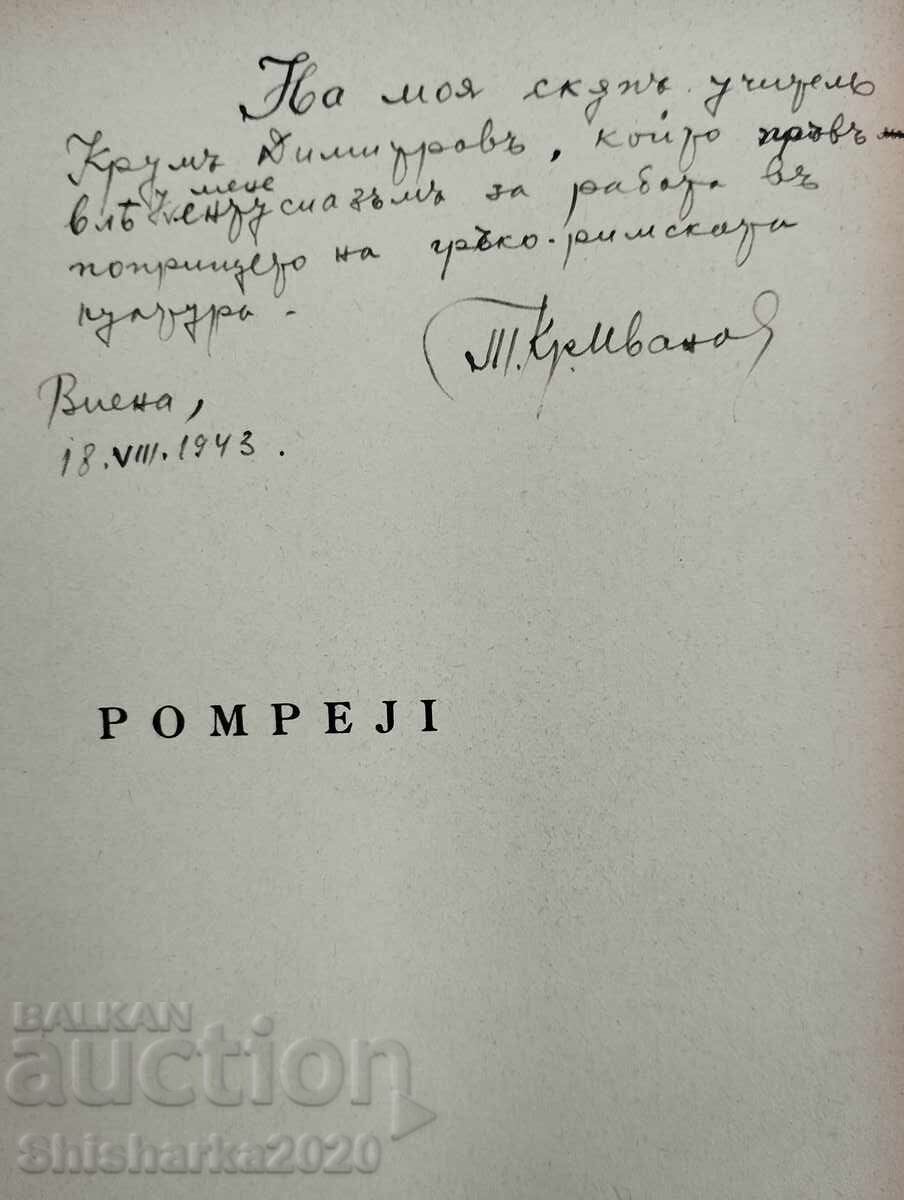 На моя скѫпъ учитель
Крумъ Димитровъ, който пръвъ
у мене
влѣ ентусиазъмъ за работа въ
попрището на гръко-римската
култура.
Т. Кр. Иванов
Виена,
18.VIII.1943.
POMPEJI
BALKAN
auction
Shisharka2020